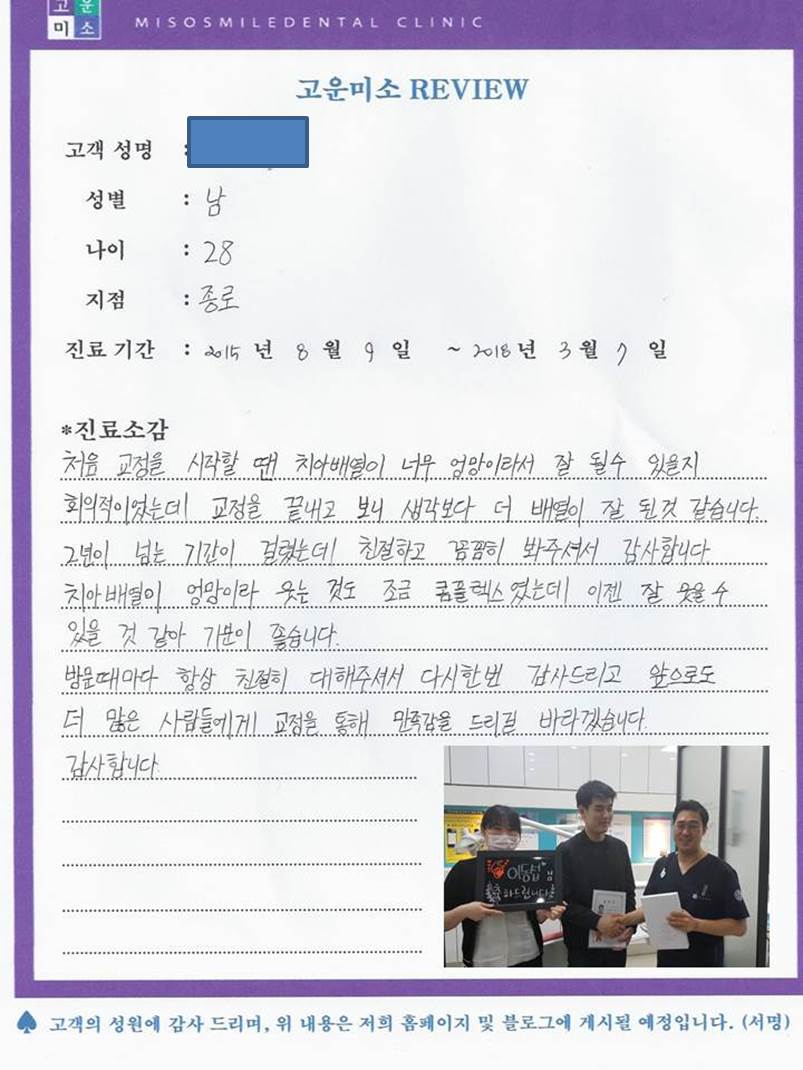 고운
미소
MISOSMILEDENTAL CLINIC
고운미소 REVIEW
고객 성명 :
성별 : 남
나이 : 28
지점 : 종로
진료기간 : 2015 년 8 월 9 일 ~ 2018 년 3 월 7 일
*진료소감
처음 교정을 시작할 땐 치아배열이 너무 엉망이라서 잘 될수 있을지
회의적이었는데 교정을 끝내고 보니 생각보다 더 배열이 잘 된것 같습니다.
2년이 넘는 기간이 걸렸는데 친절하고 꼼꼼히 봐주셔서 감사합니다.
치아배열이 엉망이라 웃는 것도 조금 콤플렉스였는데 이젠 잘 웃을수
있을 것 같아 기분이 좋습니다.
방문때마다 항상 친절히 대해주셔서 다시한번 감사드리고 앞으로도
더 많은 사람들에게 교정을 통해 만족감을 드리길 바라겠습니다.
감사합니다.
이동섭님
축하드립니다
고객의 성원에 감사 드리며, 위 내용은 저희 홈페이지 및 블로그에 게시될 예정입니다. (서명)